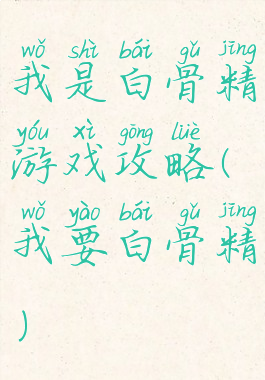 wǒ shì bái gǔ jīng
我是白骨精
yóu xì gōng lüè
游戏攻略(
wǒ yào bái gǔ jīng
我要白骨精
)